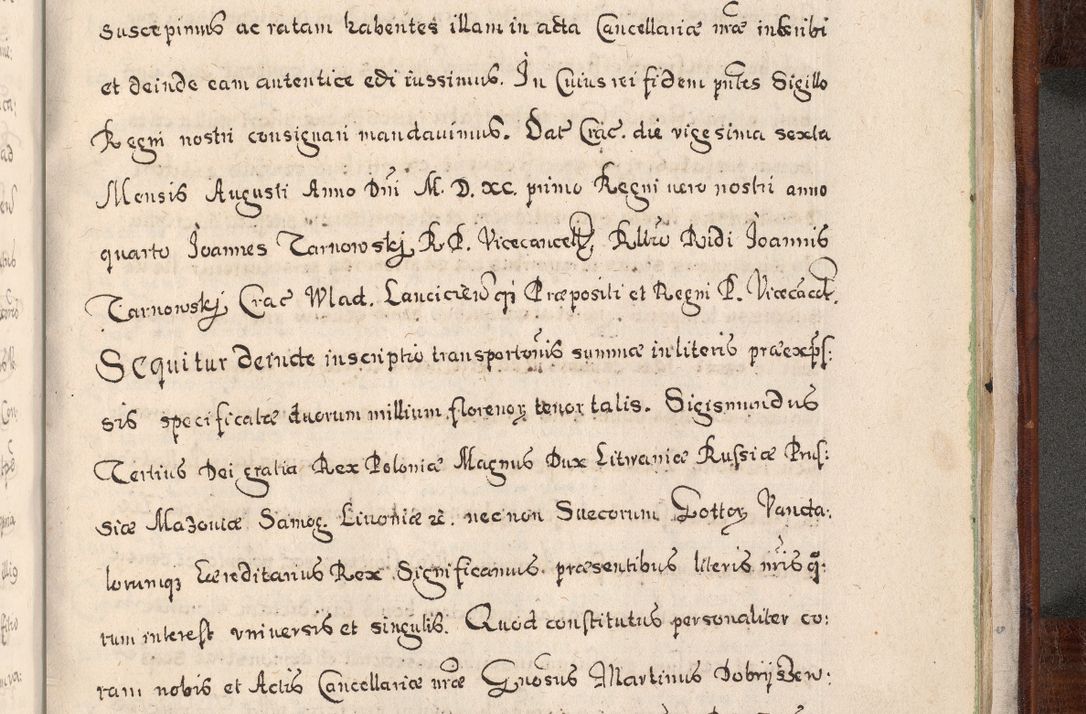 suscepimus ac ratam habentes illam in acta Cancellariæ nræ inscribi
et deinde eam autentice edi iussimus. In Cuius rei fidem pntes Sigillo
Regni nostri consignari mandauimus. Dat Crac. die vigesima sexta
Mensis Augusti Anno Dni M. D. XC. primo Regni uero nostri anno
quarto Joannes Tarnowskj R. P. Vicecancell, Rndi Joannis
Tarnowskj Crac Wlad. Lanciciew qj Præpositi et Regni P. Vicecancel.
Sequitur deincte inscriptio transportonis summæ in literis præexps:
sis specificatæ duorum millium florenoꝝ tenor talis. Sigismundus
Tertius Dei gratia Rex Poloniæ Magnus Dux Litwaniæ Russiæ Prus:
siæ Mazouiæ Samog. Liuoniæ zc. nec non Suecorum Gottoꝝ Vanda:
lorumqꝫ Hæreditarius Rex Significamus præsentibus literis nris q:
rum interest vniuersis et singulis. Quod constitutus personaliter co:
ram nobis et Actis Cancellariæ nræ Gnosus Martinus Dobrijszew: